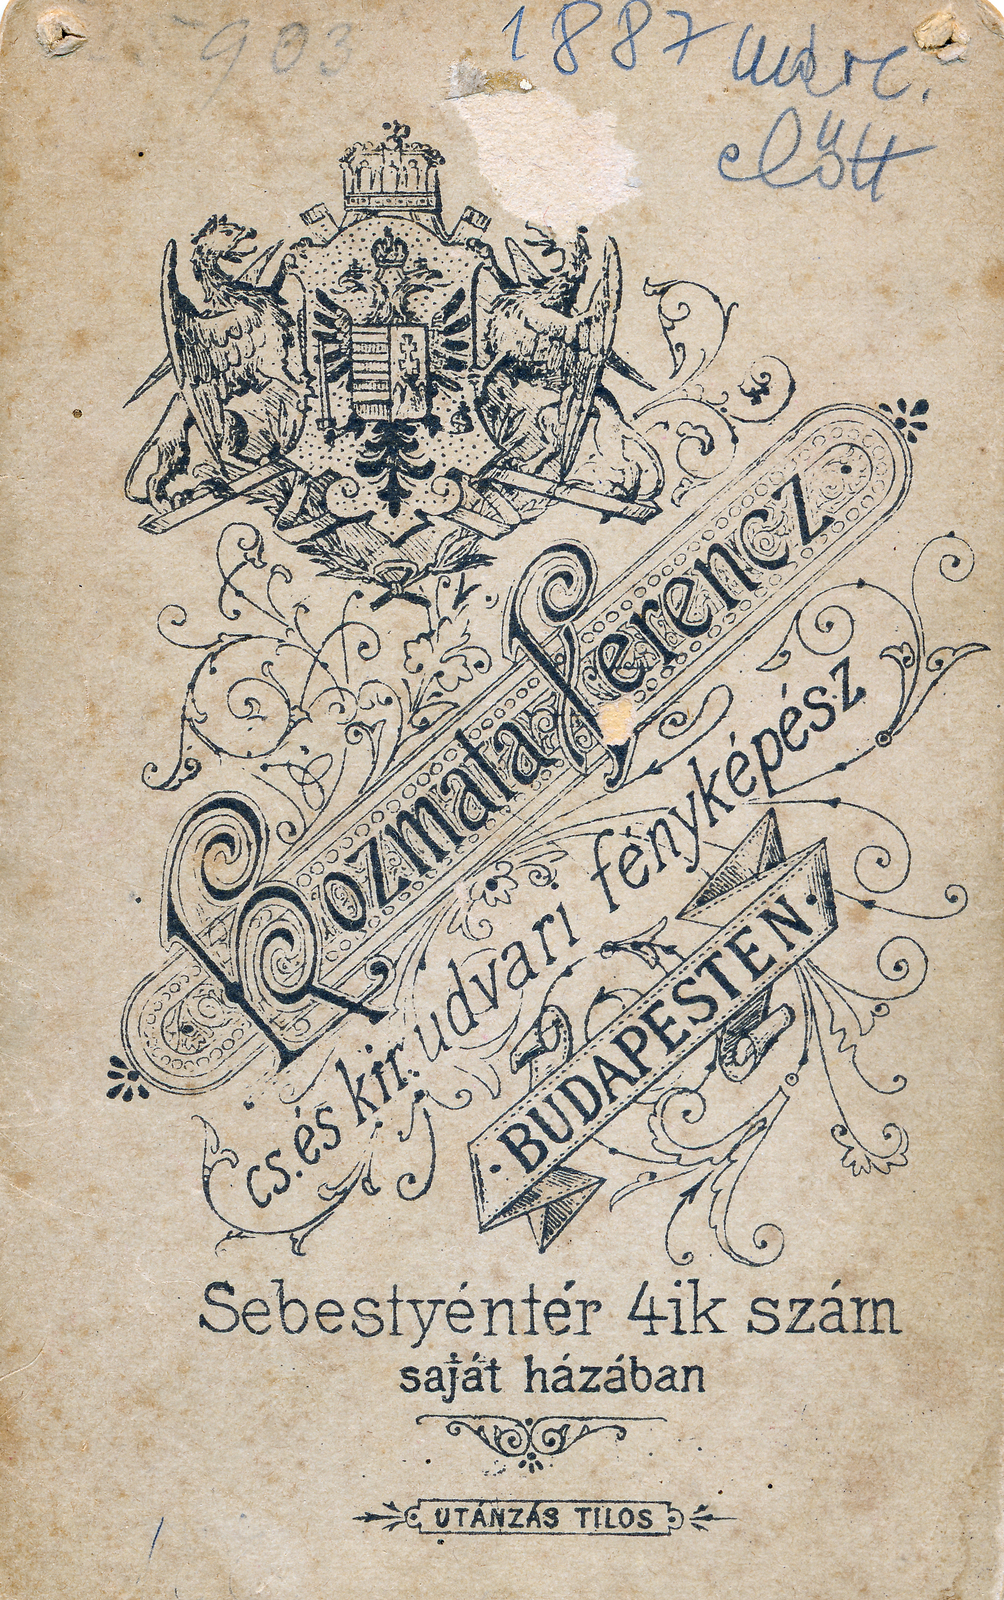 903
1887 márc.
előtt
Kozmata Ferencz
cs. és kir. udvari fényképész
BUDAPESTEN
Sebestyéntér 4ik szám
saját házában
UTÁNZÁS TILOS